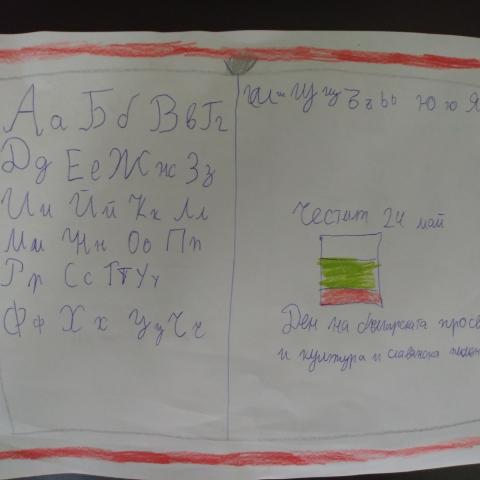 Аа Бб Вв Гг
Дд Ее Жж Зз
Ии Йй Кк Лл
Мм Нн Оо Пп
Рр Сс Тт Уу
Фф Хх Цц Чч
Шш Щщ Ъъ ь Юю Я
Честит 24 май
Ден на българската
и култура и славянска